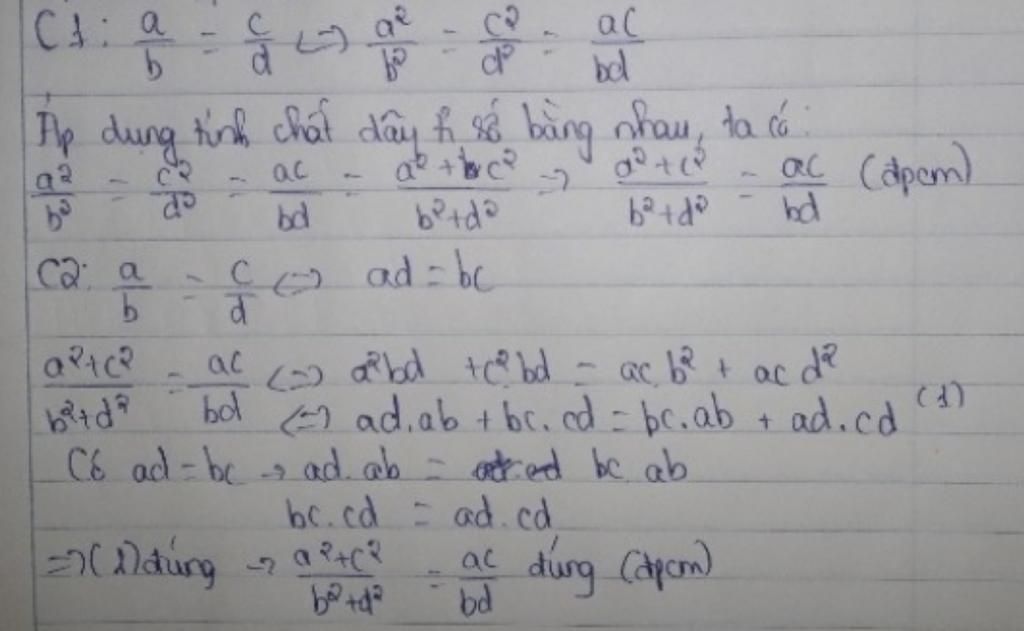 C1: a/b = c/d <=> a²/b² = c²/d² = ac/bd
Áp dụng tính chất dãy tỉ số bằng nhau, ta có:
a²/b² = c²/d² = ac/bd = (a²+c²)/(b²+d²) => (a²+c²)/(b²+d²) = ac/bd (đpcm)
C2: a/b = c/d <=> ad = bc
(a²+c²)/(b²+d²) = ac/bd <=> a²bd + c²bd = ac.b² + acd²
<=> ad.ab + bc.cd = bc.ab + ad.cd (1)
Có ad = bc → ad.ab = bc.ab
bc.cd = ad.cd
=> (1) đúng → (a²+c²)/(b²+d²) = ac/bd đúng (đpcm)